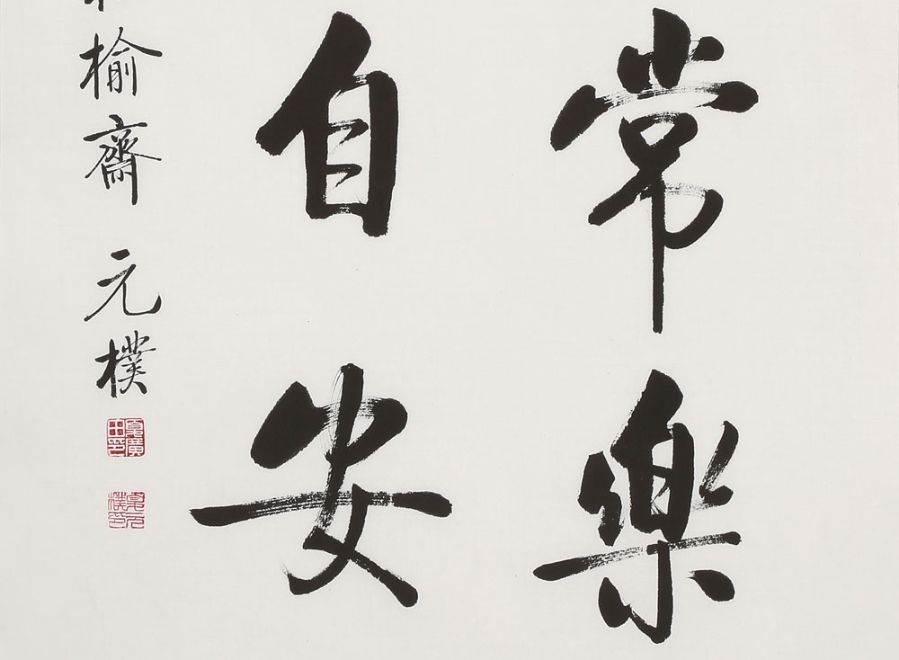 常樂
自安
榆齋 元樸